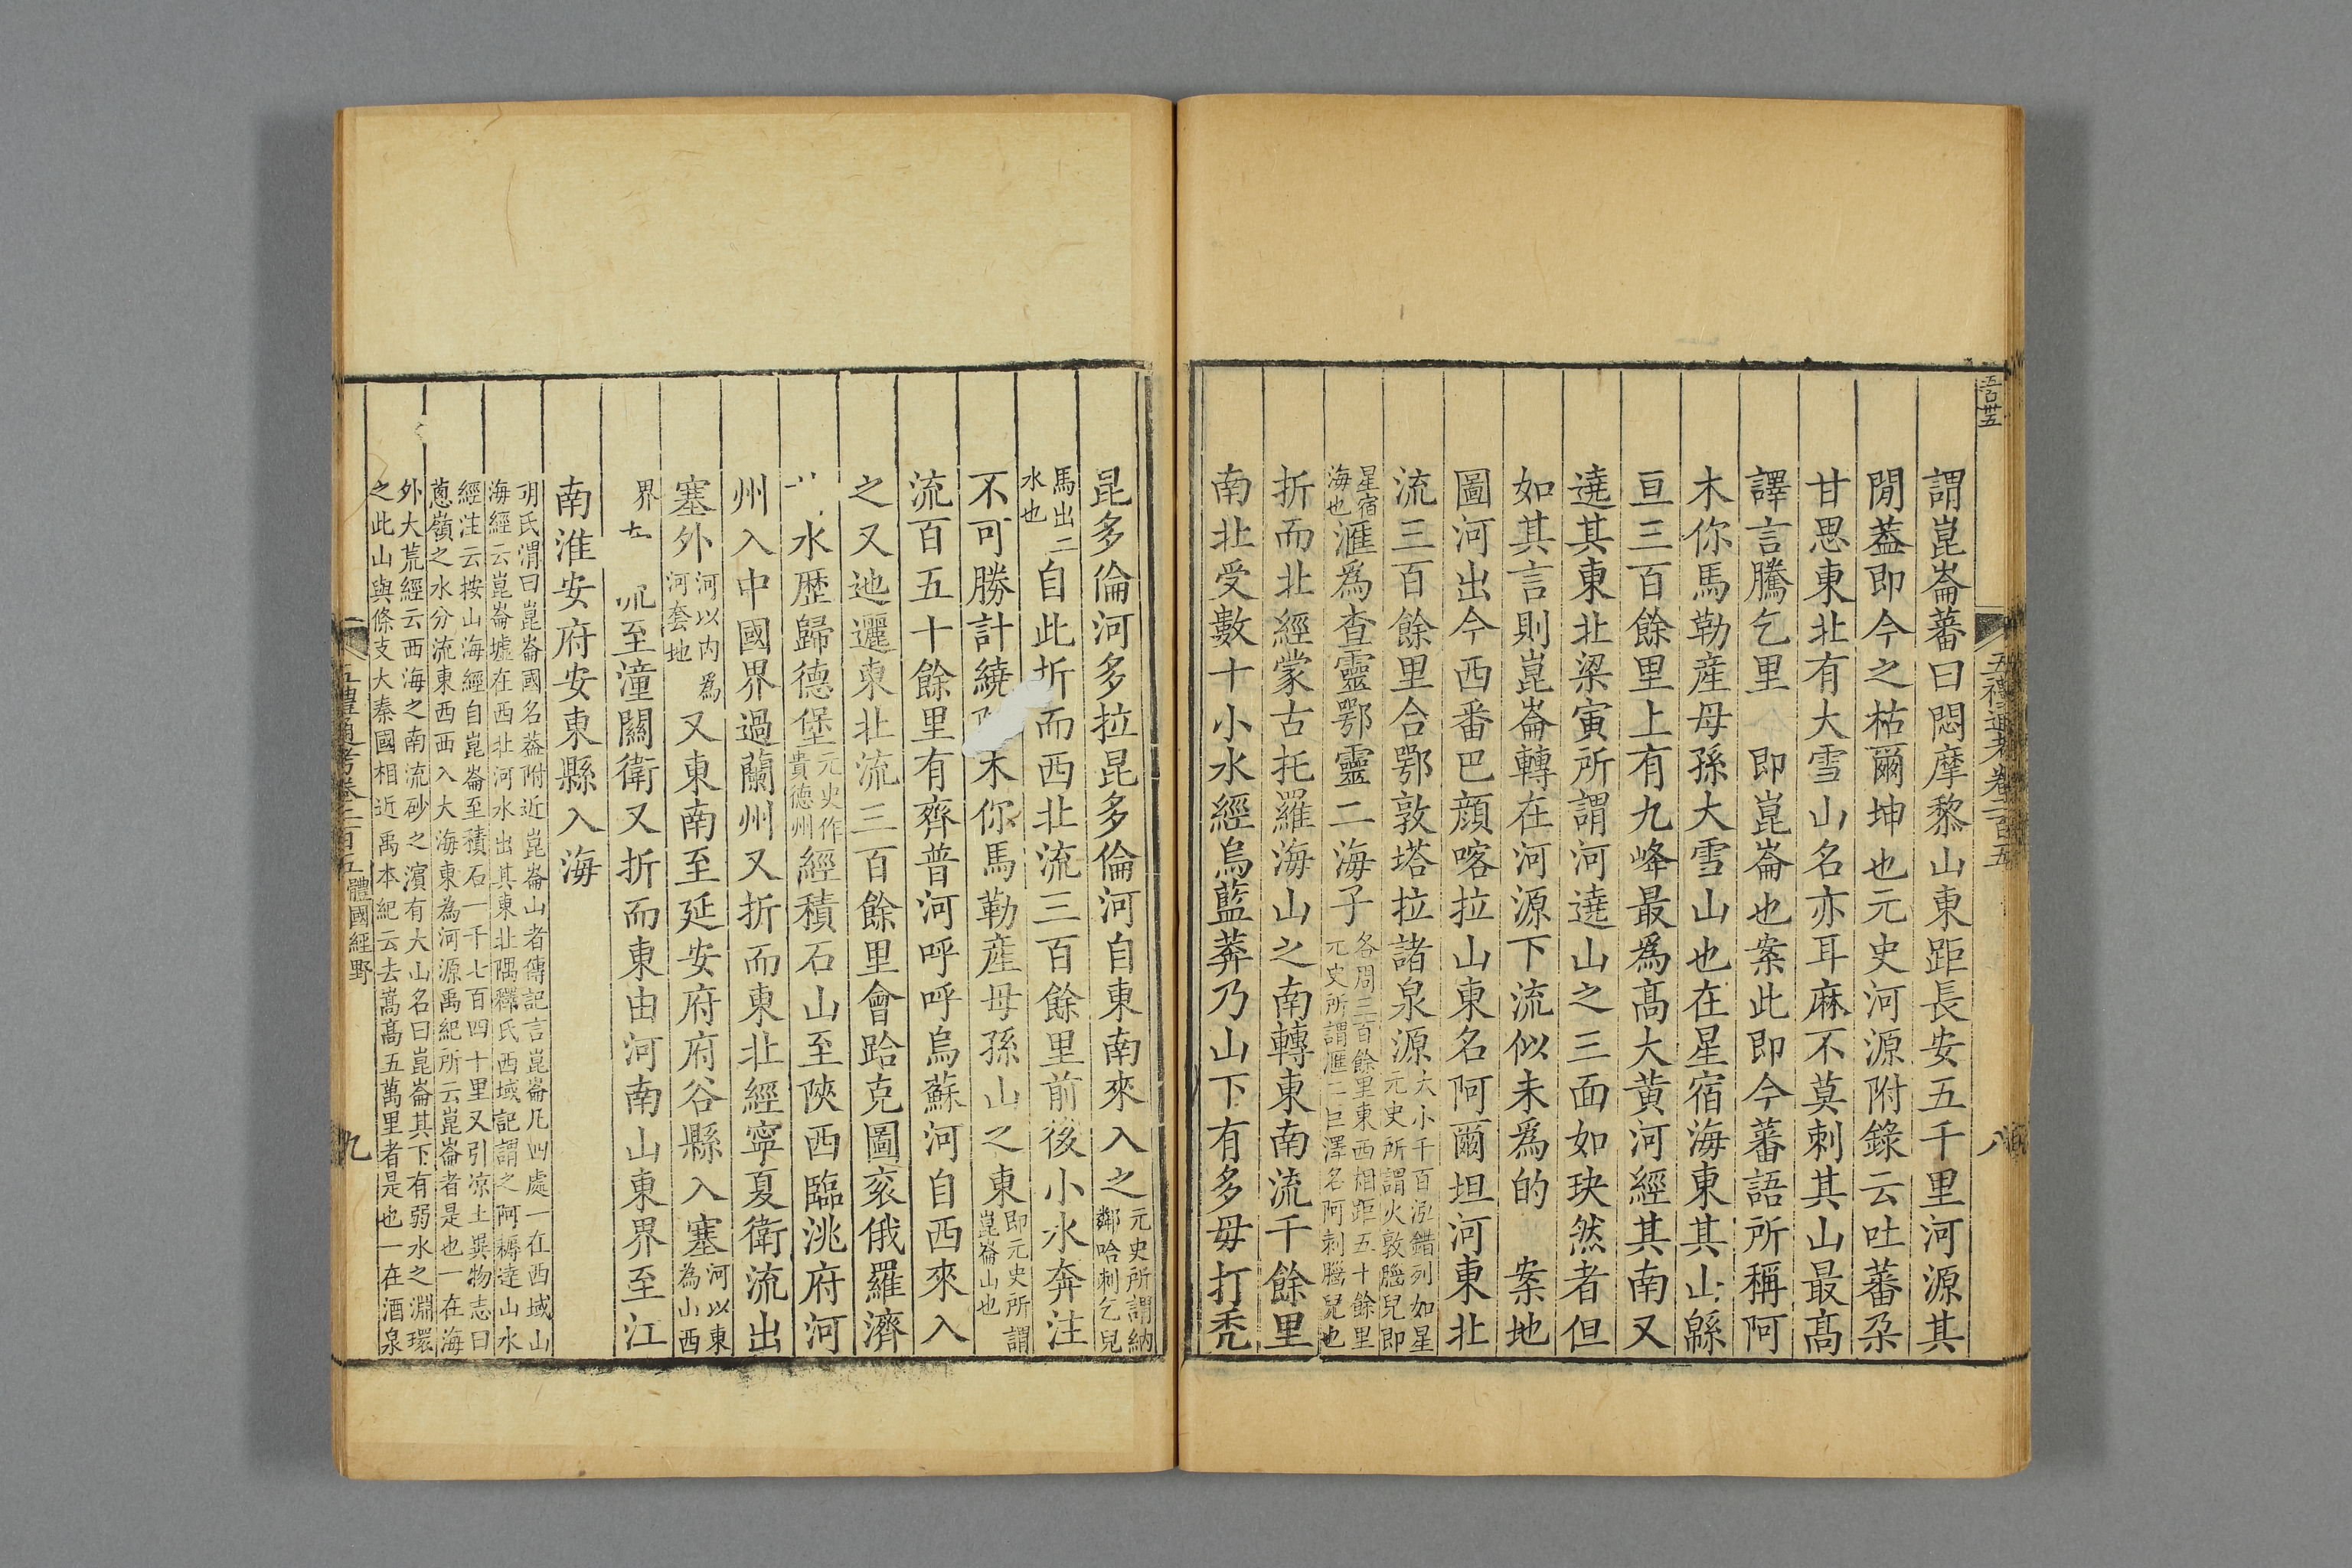 五禮通考卷二百五
八
謂崑崙蕃曰悶摩黎山東距長安五千里河源其
閒葢即今之枯爾坤也元史河源附錄云吐蕃朶
甘思東北有大雪山名亦耳麻不莫刺其山最髙
譯言騰乞里 即崑崙也案此即今蕃語所稱阿
木你馬勒産母孫大雪山也在星宿海東其山緜
亘三百餘里上有九峰最爲髙大黄河經其南又
遶其東北梁寅所謂河遶山之三面如玦然者但
如其言則崑崙轉在河源下流似未爲的 案地
圖河出今西番巴顔喀拉山東名阿爾坦河東北
流三百餘里合鄂敦塔拉諸泉源大小千百泓錯列如星元史所謂火敦腦兒即
星宿海也滙爲查靈鄂靈二海子各周三百餘里東西相距五十餘里元史所謂滙二巨澤名阿刺腦兒也
折而北經蒙古托羅海山之南轉東南流千餘里
南北受數十小水經烏藍莽乃山下有多母打禿
昆多倫河多拉昆多倫河自東南來入之元史所謂納鄰哈刺乞兒
馬出二水也自此折而西北流三百餘里前後小水奔注
不可勝計繞木你馬勒産母孫山之東即元史所謂崑崙山也
流百五十餘里有齊普河呼呼烏蘇河自西來入
之又迆邐東北流三百餘里會跲克圖衮俄羅濟
水歷歸德堡元史作貴德州經積石山至陜西臨洮府河
州入中國界過蘭州又折而東北經寧夏衛流出
塞外河以内爲河套地又東南至延安府府谷縣入塞河以東為山西
界至潼關衛又折而東由河南山東界至江
南淮安府安東縣入海
胡氏渭曰崑崙國名葢附近崑崙山者傳記言崑崙凡四處一在西域山
海經云崑崙墟在西北河水出其東北隅釋氏西域記謂之阿耨達山水
經注云按山海經自崑崙至積石一千七百四十里又引凉土異物志曰
蔥嶺之水分流東西西入大海東為河源禹紀所云崑崙者是也一在海
外大荒經云西海之南流砂之濱有大山名曰崑崙其下有弱水之淵環
之此山與條支大秦國相近禹本紀云去嵩髙五萬里者是也一在酒泉
五禮通考卷二百五 體國經野
九